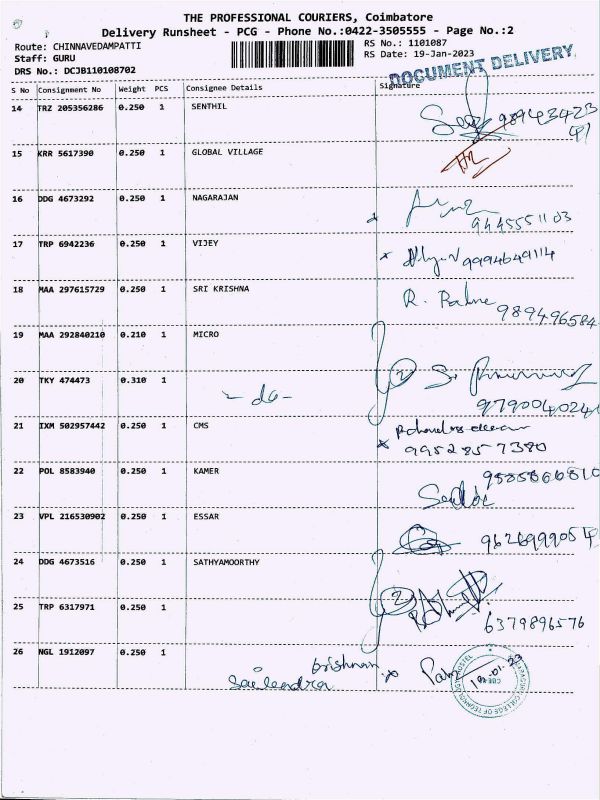 THE PROFESSIONAL COURIERS, Coimbatore
Delivery Runsheet - PCG - Phone No.:0422-3505555 - Page No.:2
Route: CHINNAVEDAMPATTI RS No.: 1101087
Staff: GURU RS Date: 19-Jan-2023
DRS No.: DCJB110108702
DOCUMENT DELIVERY
S No Consignment No Weight PCS Consignee Details Signature
14 TRZ 205356286 0.250 1 SENTHIL
15 KRR 5617390 0.250 1 GLOBAL VILLAGE
16 DDG 4673292 0.250 1 NAGARAJAN
9445551103
17 TRP 6942236 0.250 1 VIJEY
9994649114
18 MAA 297615729 0.250 1 SRI KRISHNA
989496584
19 MAA 292840210 0.210 1 MICRO
20 TKY 474473 0.310 1
- do -
21 IXM 502957442 0.250 1 CMS
9952857380
22 POL 8583940 0.250 1 KAMER
23 VPL 216530902 0.250 1 ESSAR
24 DDG 4673516 0.250 1 SATHYAMOORTHY
2
25 TRP 6317971 0.250 1
6379896576
26 NGL 1912097 0.250 1
krishnan
Sailendra